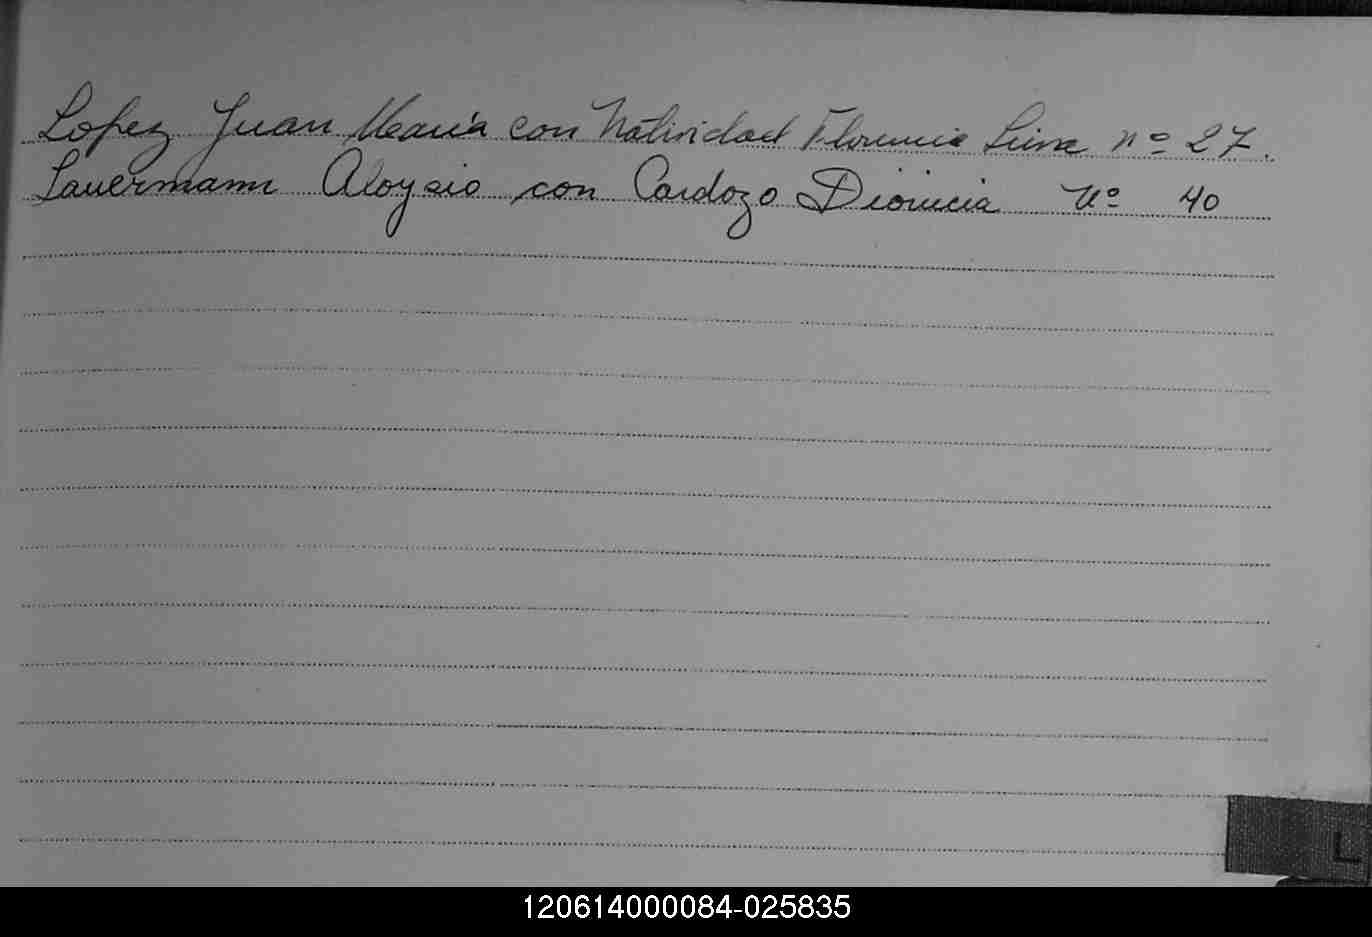 Lopez Juan Maria con Natividad Florencia nº 27.
Lauermann Aloysio con Cardozo Dionicia Nº 40
L
120614000084-025835